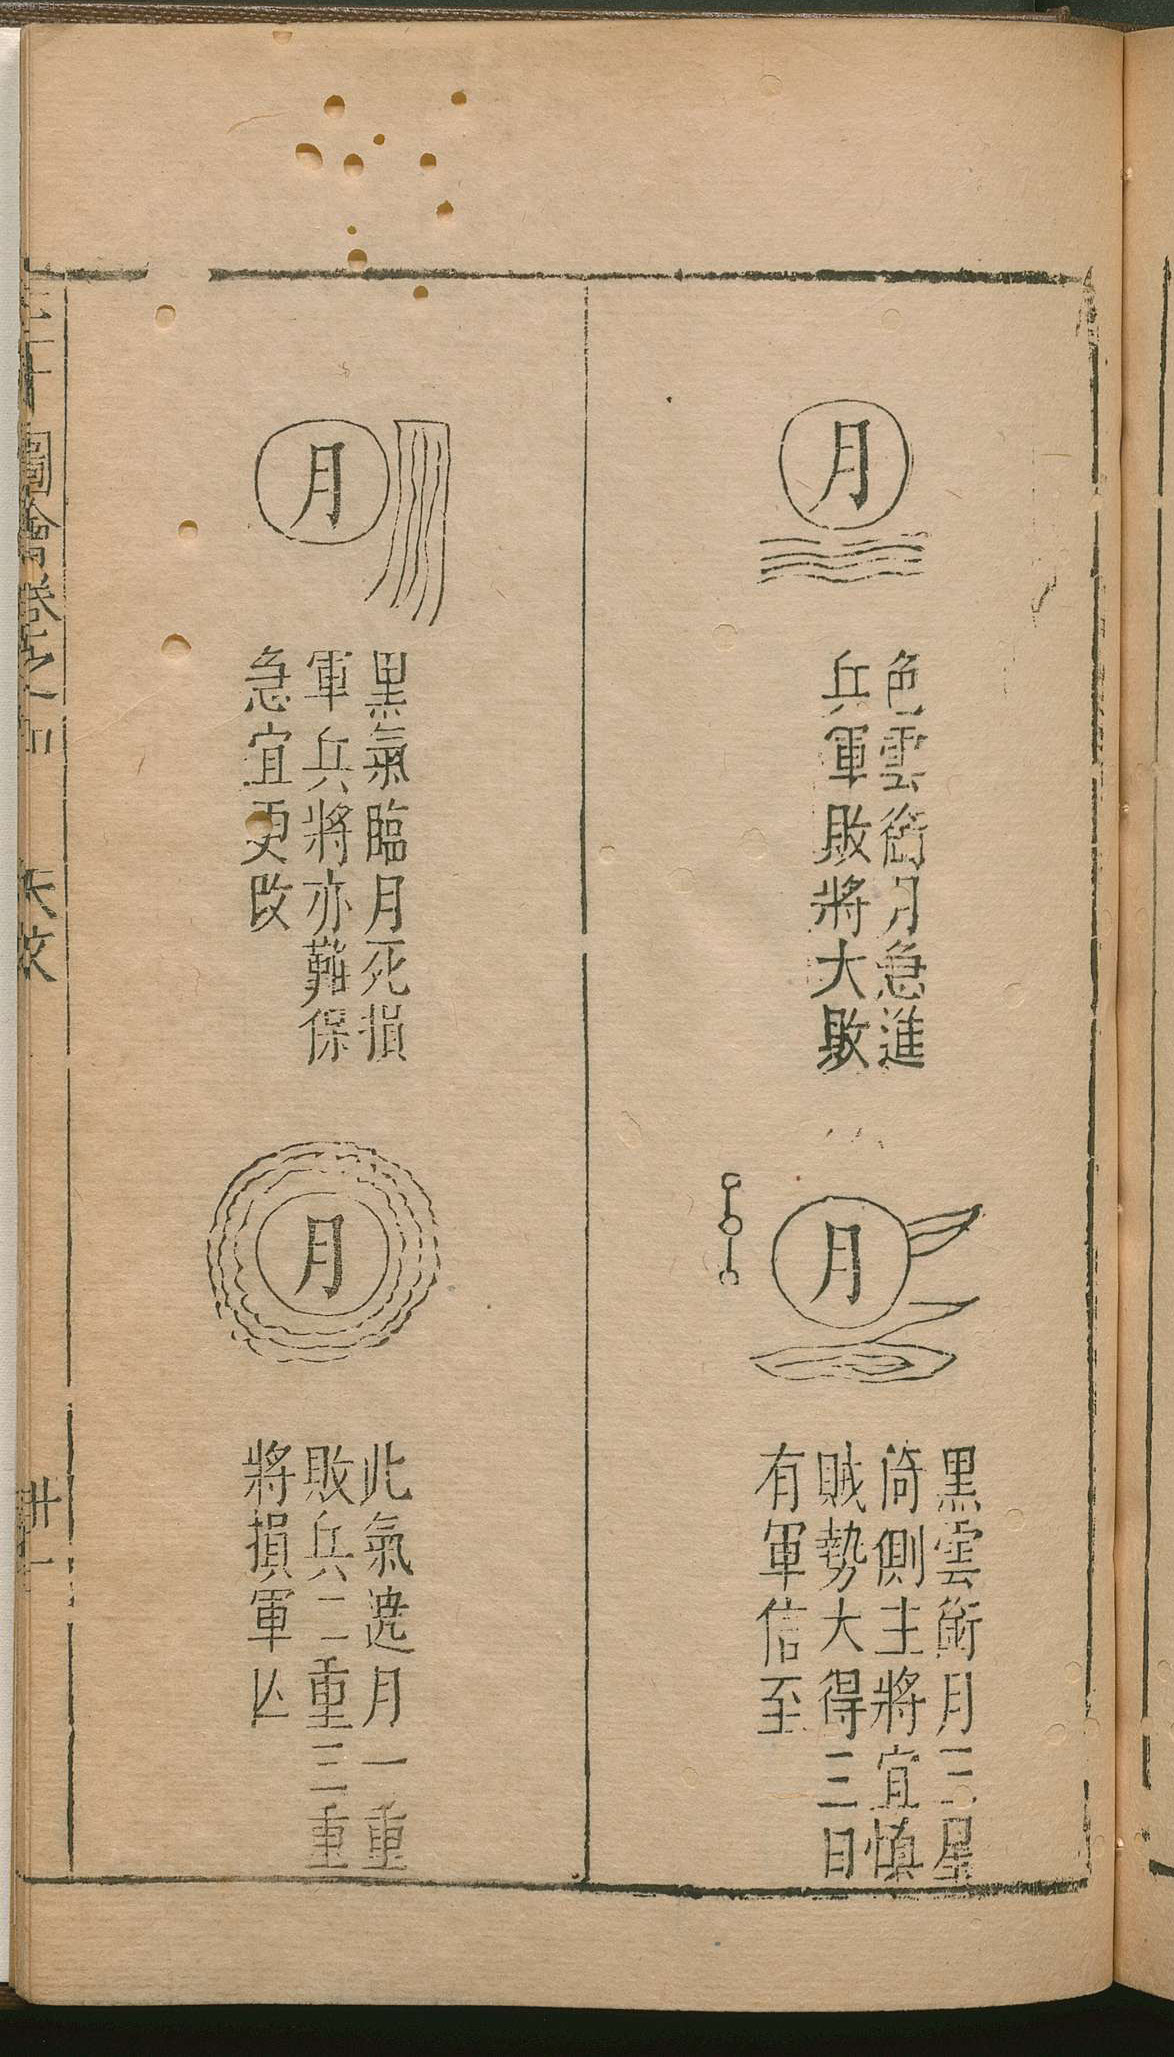 月
色雲銜月急進
兵軍敗將大敗
月
黑雲銜月三星
倚側主將宜慎
賊勢大得三日
有軍信至
月
黑氣臨月死損
軍兵將亦難保
急宜更改
月
此氣遶月一重
敗兵二重三重
將損軍亾
三才圖會卷之四
天文
卅一